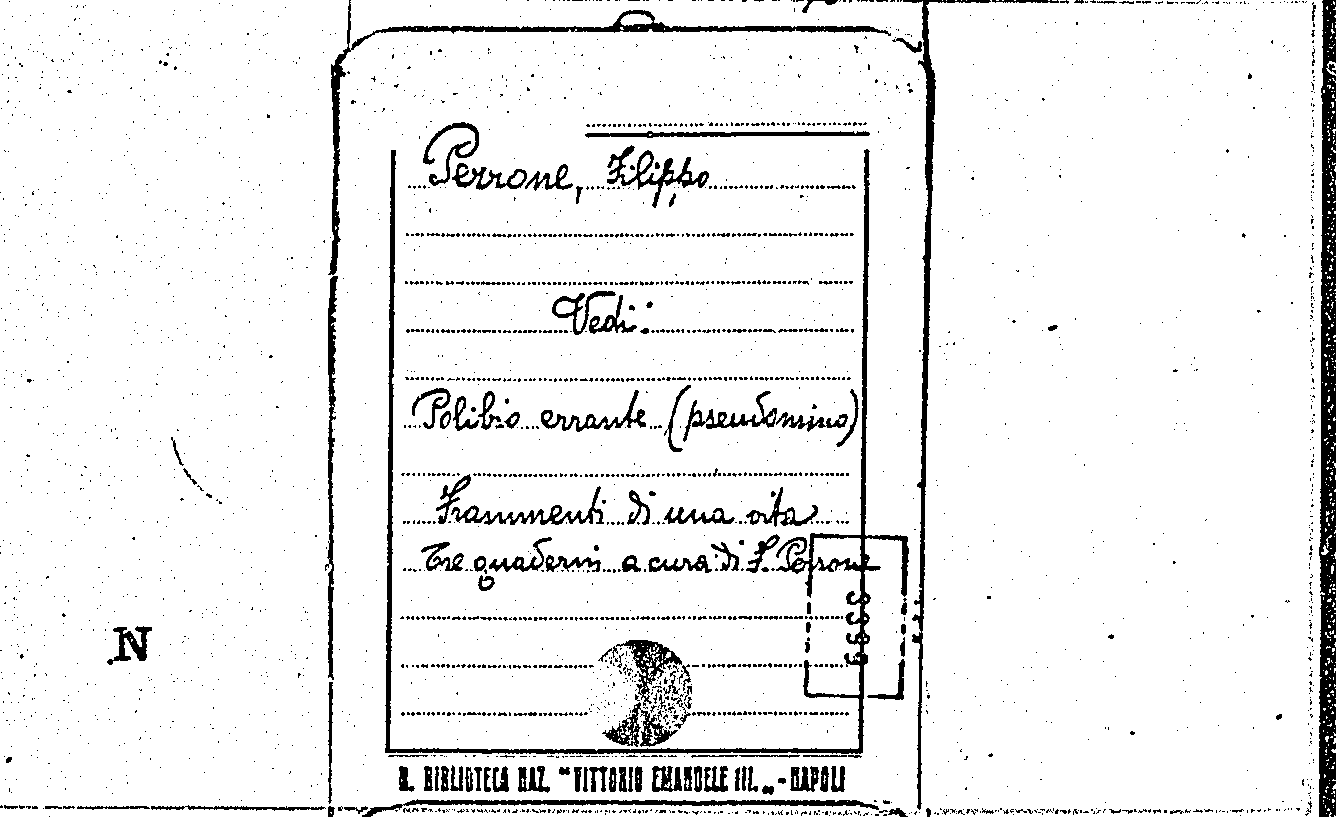 Perrone, Filippo
Vedi:
Polibio errante (pseudomino)
Frammenti di una vita
Tre quaderni a cura di F. Perrone
N
R. BIBLIOTECA NAZ. "VITTORIO EMANUELE III." - NAPOLI